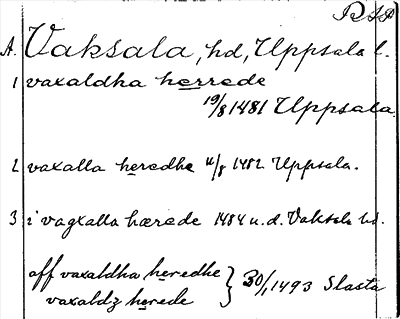 RSP
A. Vaksala, hd, Uppsala l.
1 vaxaldha herrede
19/8 1481 Uppsala.
2 vaxalla heredhe 11/8 1482 Uppsala.
3 i vagxalla hærede 1484 u.d. Vaksala hd.
aff vaxaldha heredhe } 30/1 1493 Slasta
vaxaldz herede